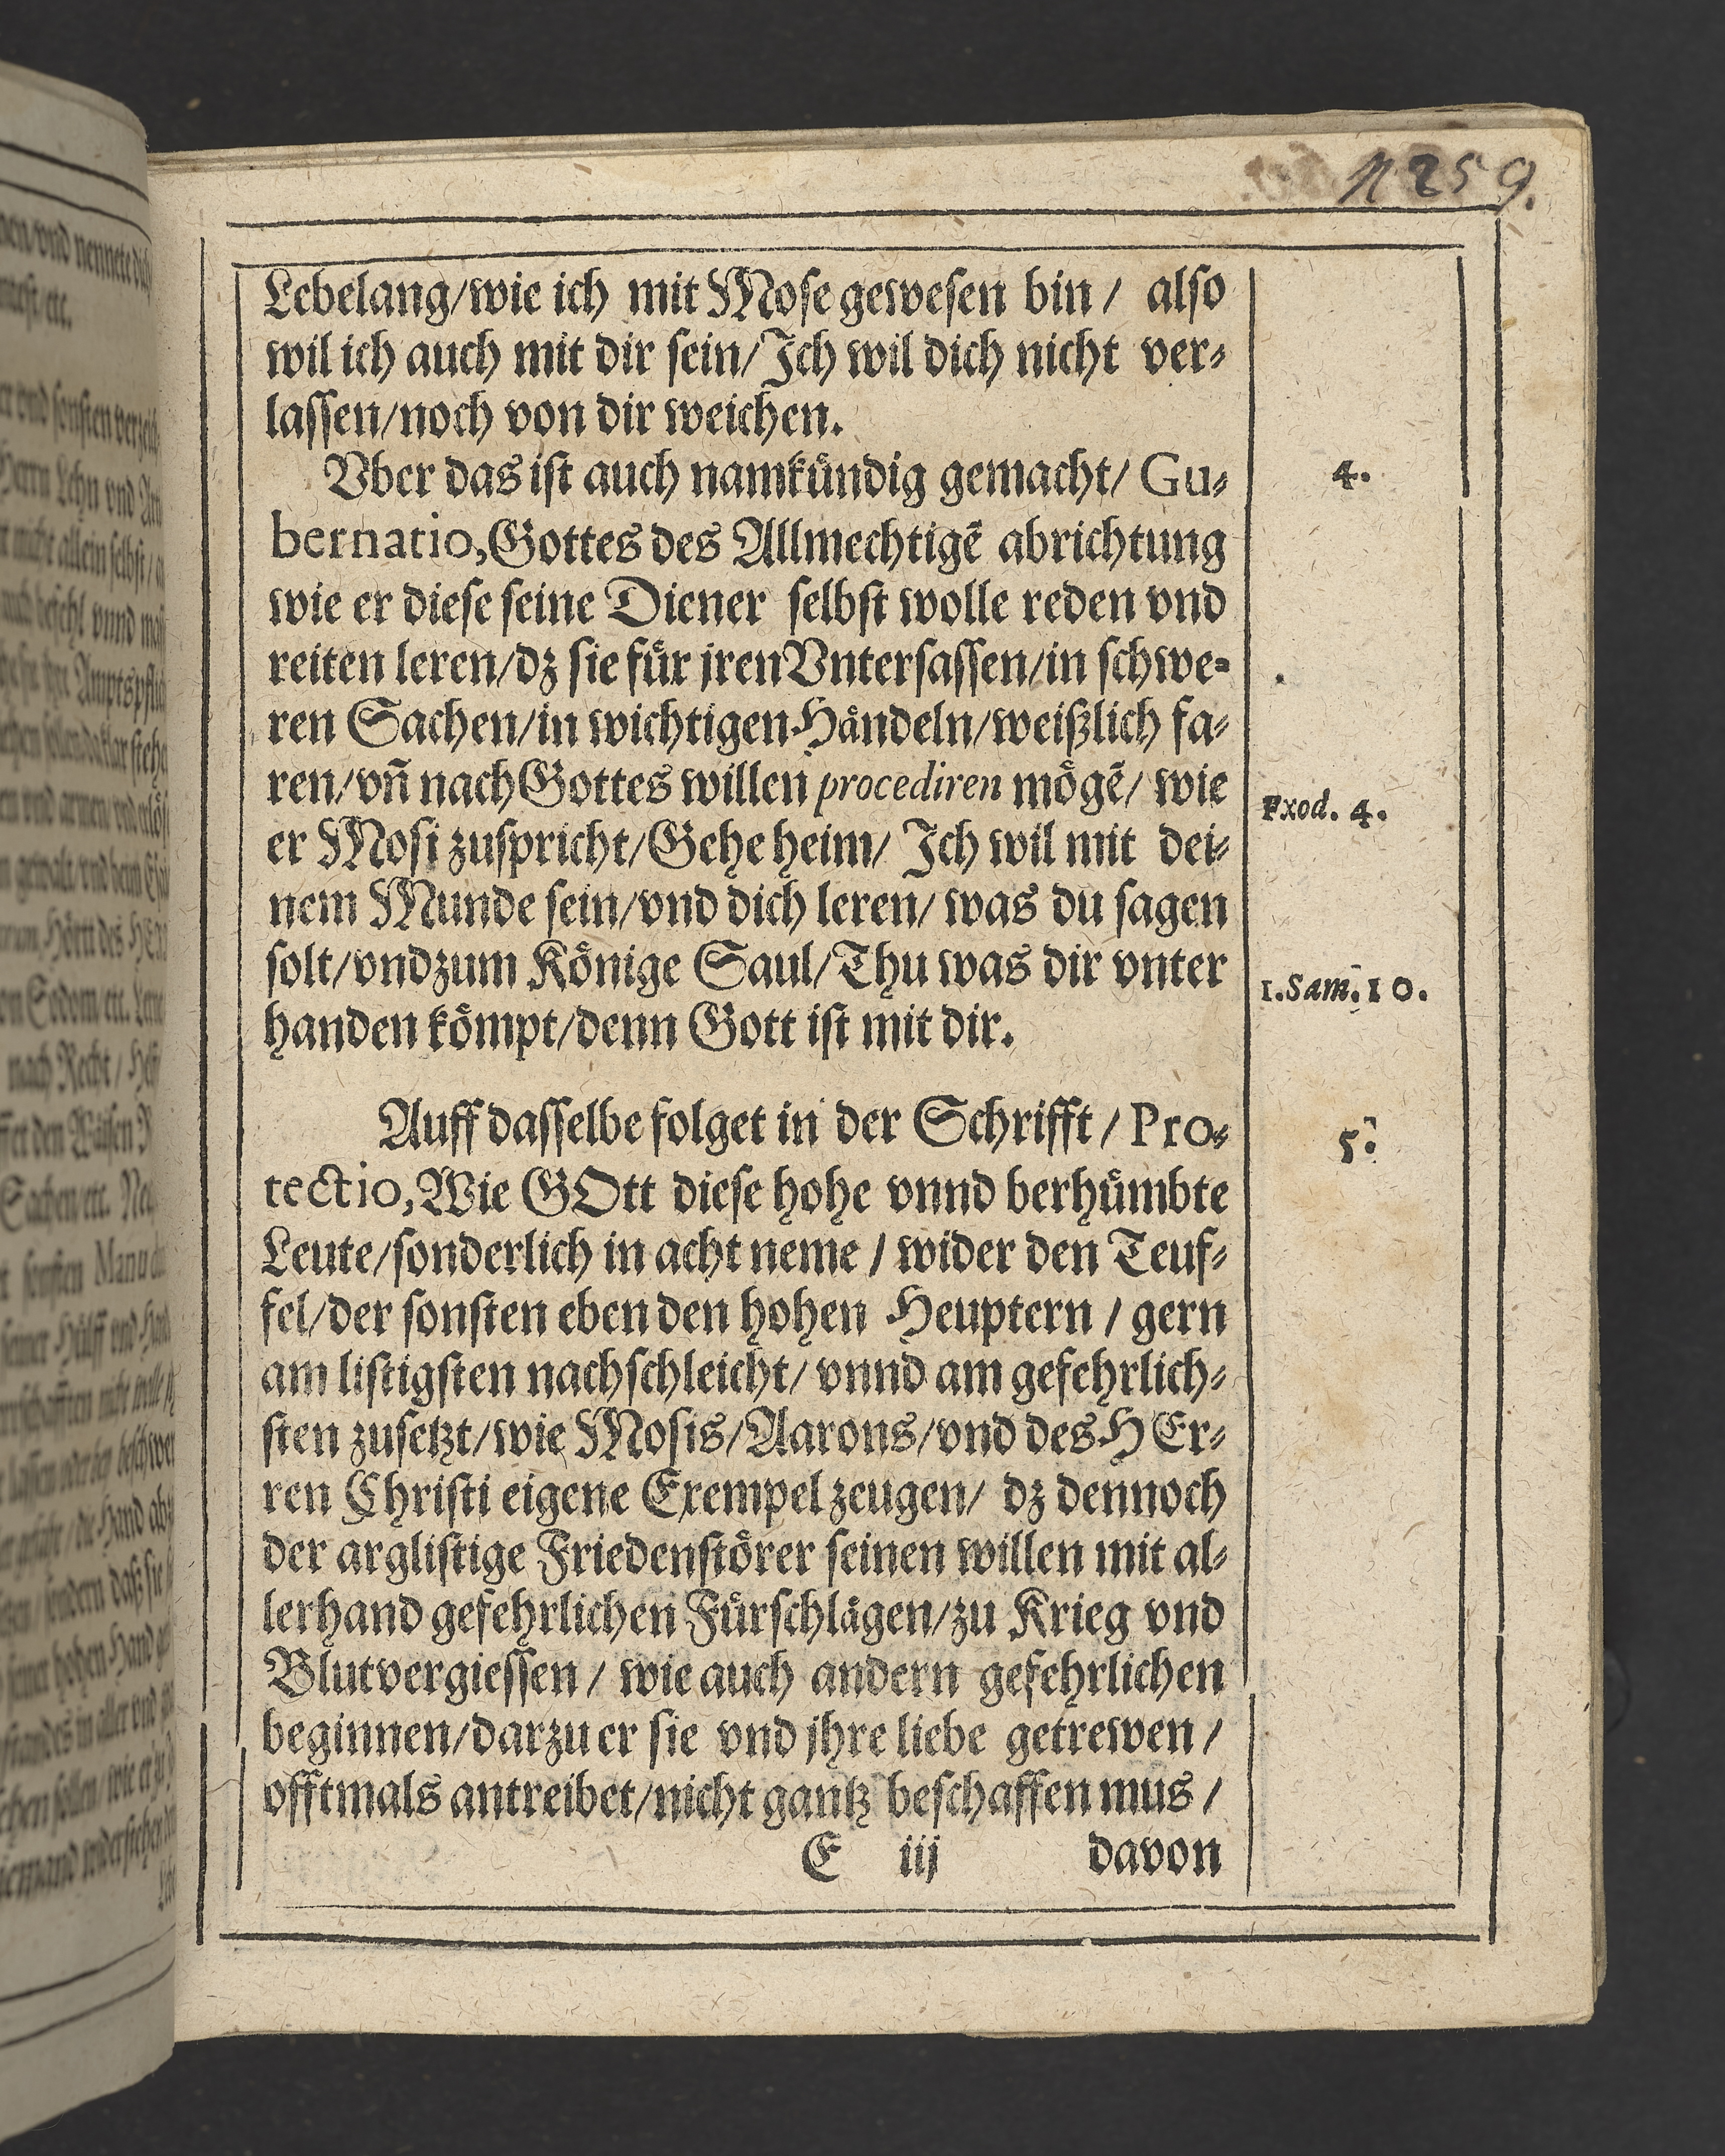 11259.
Lebelang/wie ich mit Mose gewesen bin / also
wil ich auch mit dir sein/Ich wil dich nicht ver⸗
lassen/noch von dir weichen.
Vber das ist auch namkuͤndig gemacht/ Gu⸗
4.
bernatio,Gottes des Allmechtigẽ abrichtung
wie er diese seine Diener selbst wolle reden vnd
reiten leren/dz sie fuͤr jren Vntersassen/in schwe⸗
ren Sachen/in wichtigen Haͤndeln/weißlich fa⸗
ren/vñ nach Gottes willen procediren moͤgẽ/ wie
Exod. 4.
er Mosi zuspricht/Gehe heim/ Ich wil mit dei⸗
nem Munde sein/vnd dich leren/ was du sagen
solt/vnd zum Koͤnige Saul/Thu was dir vnter
1.Sam.10.
handen koͤmpt/denn Gott ist mit dir.
Auff dasselbe folget in der Schrifft / Pro⸗
5.
tectio,Wie GOtt diese hohe vnnd berhuͤmbte
Leute/sonderlich in acht neme / wider den Teuf⸗
fel/der sonsten eben den hohen Heuptern / gern
am listigsten nachschleicht/ vnnd am gefehrlich⸗
sten zusetzt/wie Mosis/Aarons/vnd des HEr⸗
ren Christi eigene Exempel zeugen/ dz dennoch
der arglistige Friedenstoͤrer seinen willen mit al⸗
lerhand gefehrlichen Fuͤrschlaͤgen/zu Krieg vnd
Blutvergiessen / wie auch andern gefehrlichen
beginnen/darzu er sie vnd jhre liebe getrewen /
offtmals antreibet/nicht gantz beschaffen mus /
E iij davon